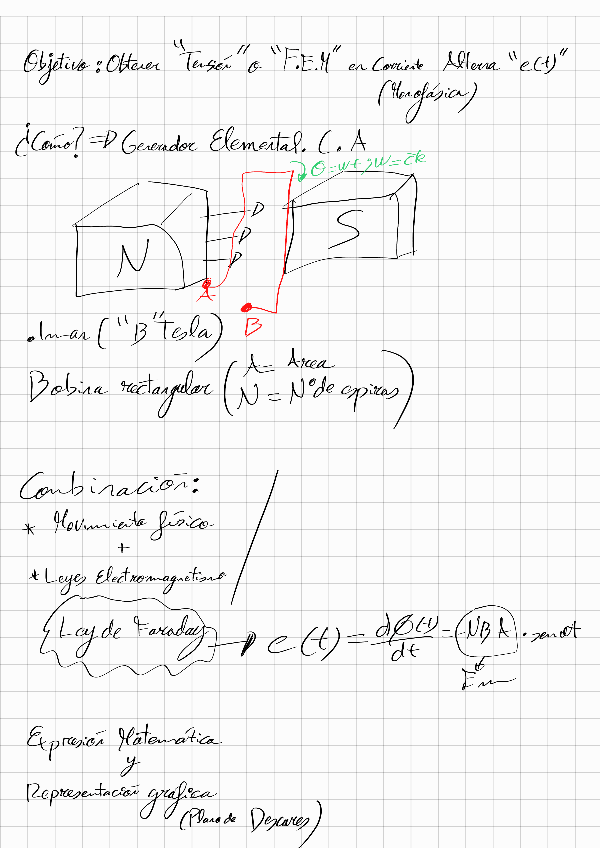 Objetivo: Obtener "Tensión" o "F.E.M" en Corriente Alterna "e(t)"
(Monofásica)
¿Como? => Generador Elemental. C. A
θ=wt ; w=cte
N
S
A
B
• Iman ("B" Tesla)
Bobina rectangular (A = Area
N = Nº de espiras)
Combinación:
* Movimiento físico
+
* Leyes Electromagnetismo
Ley de Faraday → e(t) = dϕ(t)/dt = NBA · sen
Em
Expresión Matemática
y
Representación gráfica
(Plano de Descares)